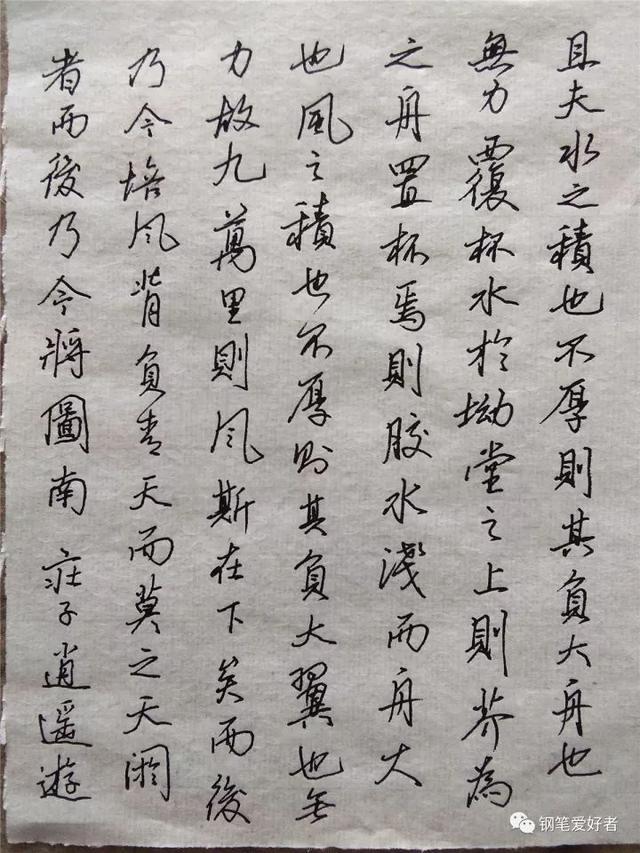 且夫水之積也不厚則其負大舟也
無力覆杯水於坳堂之上則芥為
之舟置杯焉則膠水淺而舟大
也風之積也不厚則其負大翼也無
力故九萬里則風斯在下矣而後
乃今培風背負青天而莫之夭閼
者而後乃今將圖南 莊子逍遙遊
钢笔爱好者